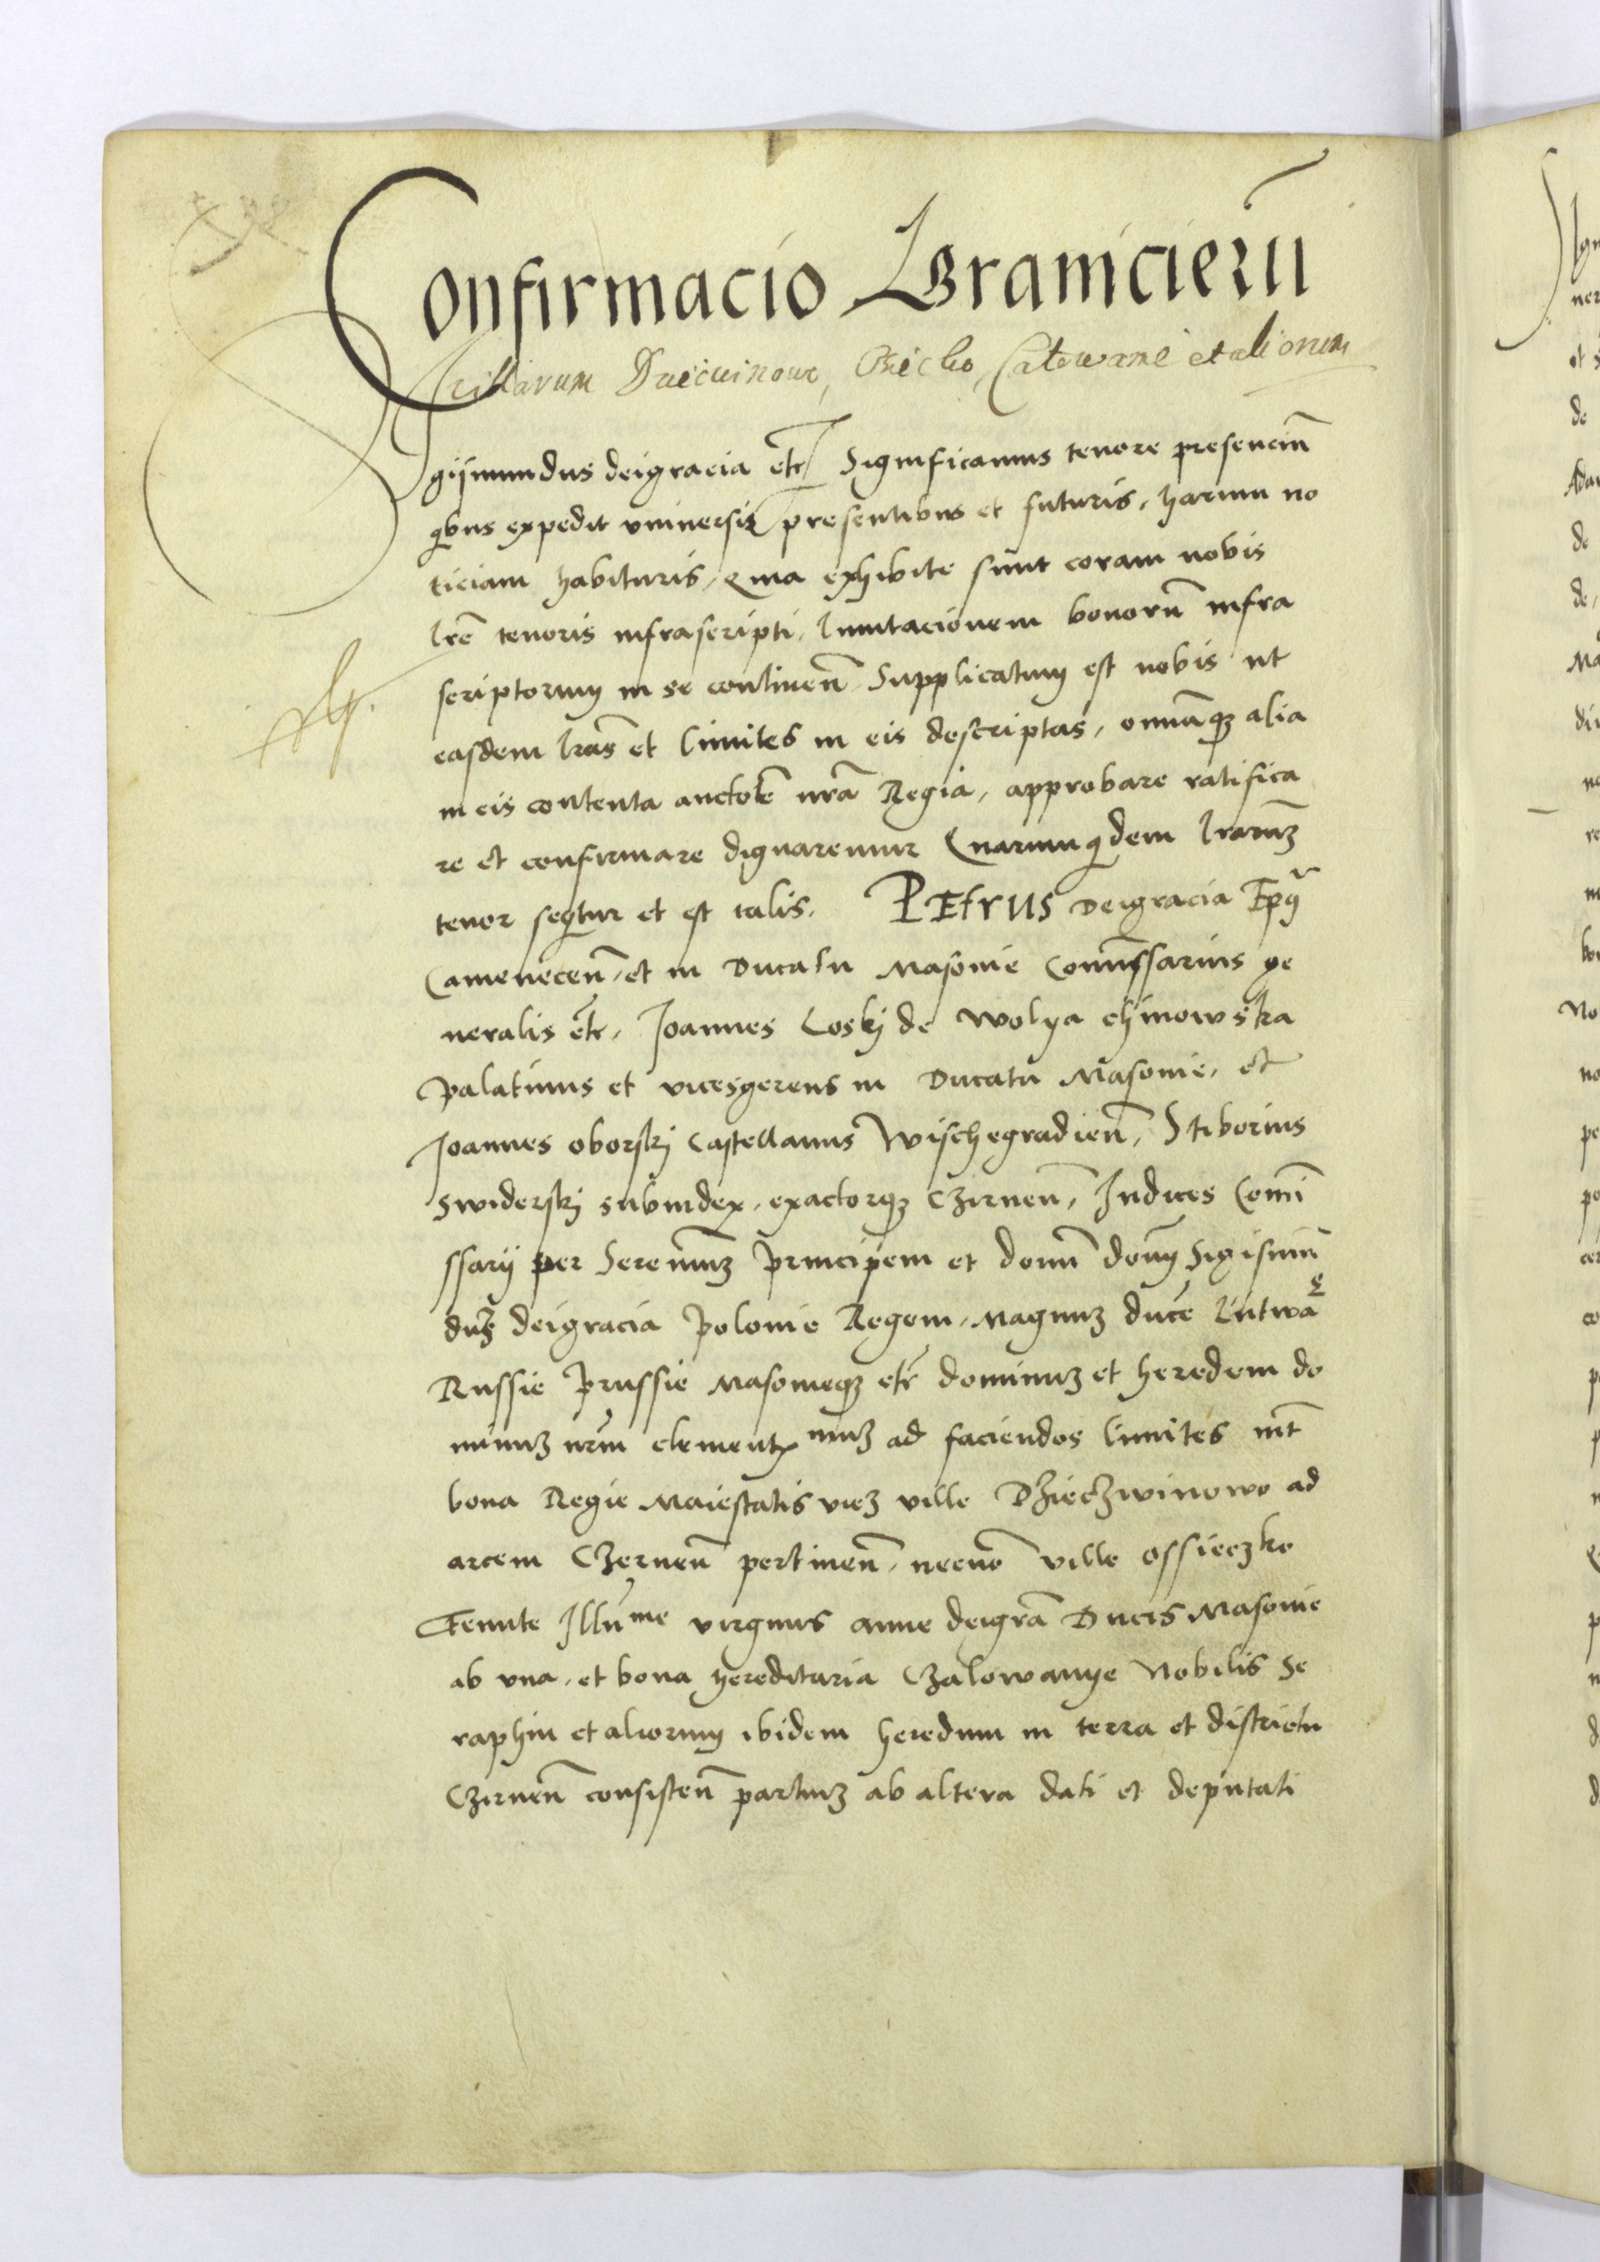 Confirmacio Granicierũ
villarum Dziecvinowe, Osiecko, Calowanie et aliorum
Sigijmundus deigracia etc̃ Significamus tenore presenciũ
qibus expedit vniuersis presentibus et futuris, harum no
ticiam habituris, quia exhibite sunt coram nobis
lrẽ tenoris infrascripti, limitacionem bonorũ infra
scriptorum in se continen̄ Supplicatum est nobis ut
easdem lrãs et limites in eis descriptas, omnãqꝫ alia
in eis contenta auctoĩẽ nrã Regia, approbare ratifica
re et confirmare dignaremur Quarumqidem lrarũꝫ
tenor seqitur et est talis. PEtrus Deigracia Ep̃us
Camenecen̄, et in Ducatu Masouie Com̃issarius ge
neralis etc̃, Joannes Loskj de Wolya chinowska
Palatinus et vicesgerens in Ducatu Masouie, et
Joannes oborskj Castellanus Wischegradien̄, Stiborius
Swiderskj subiudex, exactorqꝫ Czirnen̄, Judices Com̃i
ssarij per Serenim̃ꝫ Principem et dom̃ dom̃ Sigismũ
dũꝫ deigracia Polonie Regem, Magnuꝫ ducẽ Litwãe
Russie Prussie Masouieqꝫ etc̃ dominuꝫ et heredem do
minuꝫ nrm̃ clementxmuꝫ ad faciendos limites int̃
bona Regie Maiestatis vicꝫ ville Dzieczwinowo ad
arcem Czernen̄ pertinen̄, necnõ ville Ossieczko
Tenute Illũme virginis anne deigrã Ducis Masouie
ab vna, et bona hereditaria Czalowanye Nobilis Se
raphin et aliorum ibidem heredum in terra et districtu
Czirnen̄ consisten̄ partiuꝫ ab altera dati et deputati